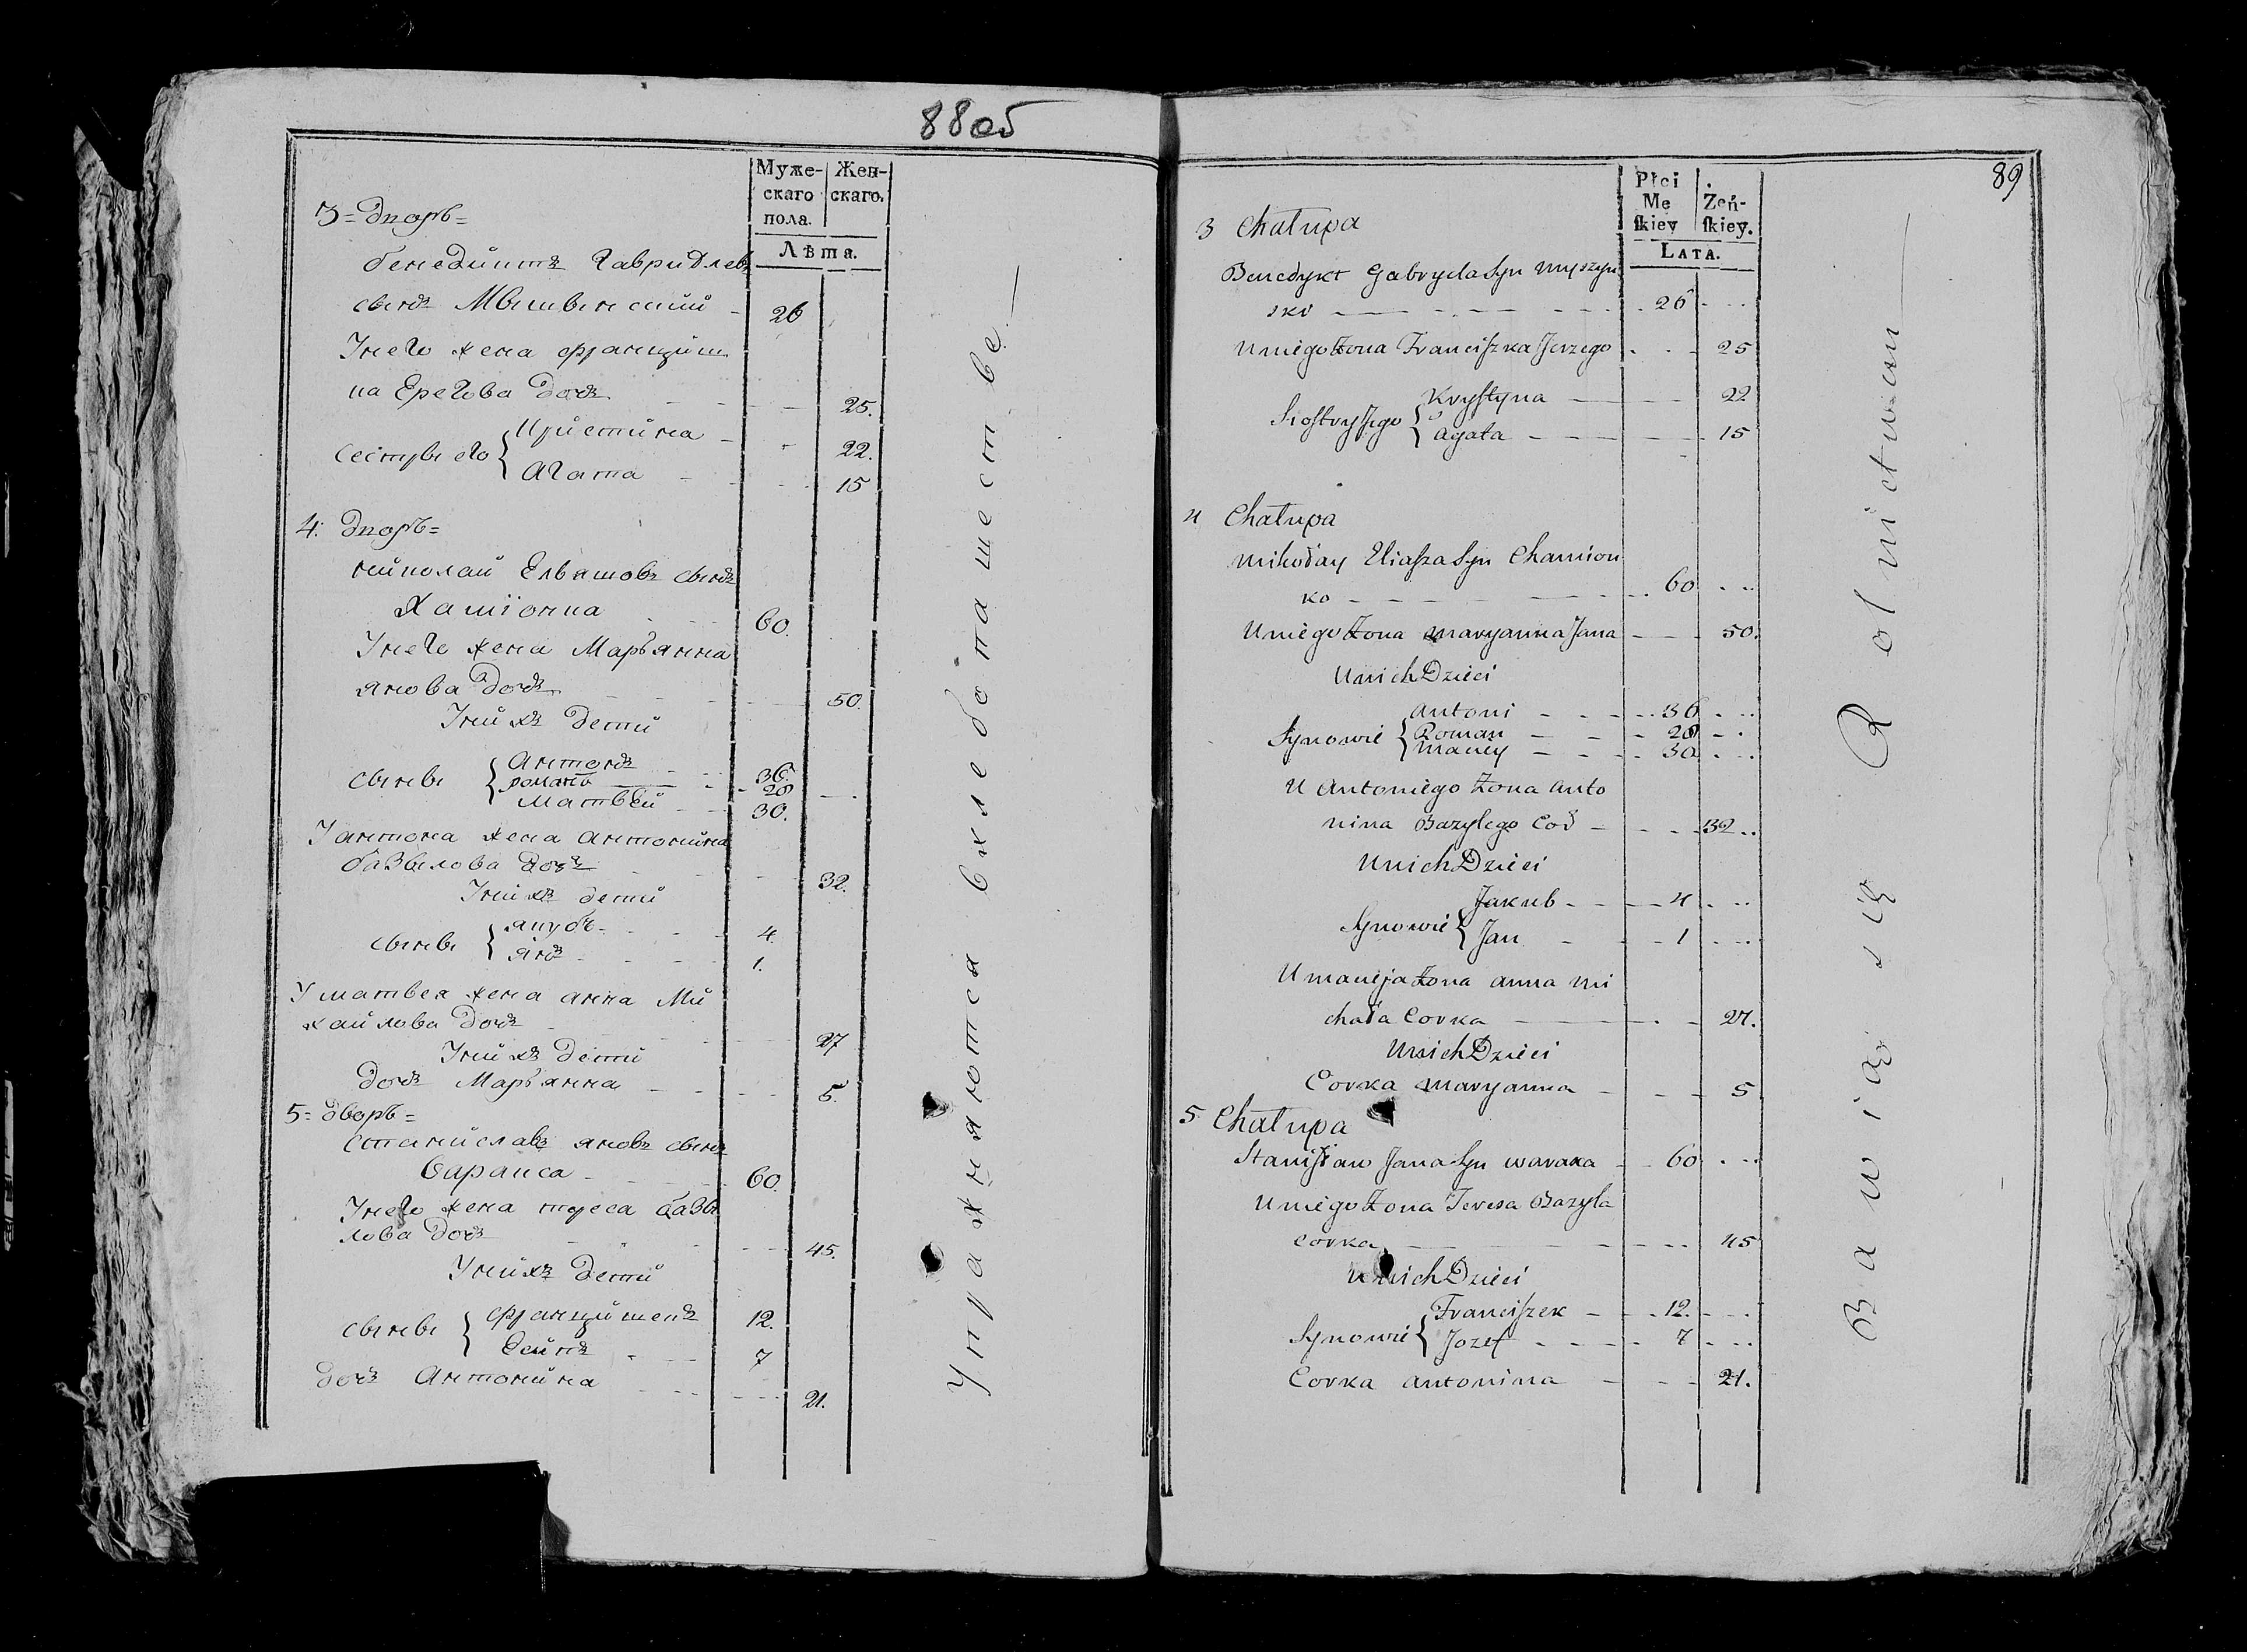 88 об
Муже-
скаго
пола.
Жен-
скаго.
Лѣта.
3= Дворъ=
бенедиктъ Гаврилевъ
сынъ Мышынский - 26
Унего жена францишка
на Ерегова дочь - - - 25.
Сестры его { Кристина - - 22.
Агата - - - 15
4: Дворъ=
николай Ельяшовъ сынъ
Хамionка 60.
Унего жена Марьянна
янова дочь - - 50.
Унихъ дети
сыны { Антонъ - - 36.
романъ - - 28
Матвей - - 30.
У антона жена антонина
базылова дочь - - 32.
Унихъ дети
сыны { якубъ - - 4.
янъ - - 1.
У матвея жена анна Ми
хайлова дочь - - 27
Унихъ дети
дочь Марьянна - - - 5.
5= дворъ=
Станиславъ яновъ сынъ
60.
Унего жена тереса базы
лова дочь - - - 45.
Унихъ дети
сыны { францишекъ 12.
7
дочь Антонина - - - 21.
Упражняются в хлебопашестве. —
89
Płci
Mę
ſkiey
Żeń-
ſkiey.
Lata.
3 Chałupa
Benedykt Gabryela Syn Myszyn
ski - - - 26 - - -
U niego Żona Franciſzka Jerzego - - - 25
Sioſtry Jego { Kryſtyna - - - 22
Agata - - - 15
4 Chałupa
Mikołay Eliaſza Syn Chamion
ko - - - 60 - - -
U niego Żona Maryanna Jana - - - 50.
U nich Dzieci
Synowie { Antoni - - - 36 - - -
Roman - - - 28 - -
Maciey - - - 30 - - -
U Antoniego Żona Anto
nina Bazylego Co - - - 32 - -
U nich Dzieci
Synowie { Jakub - - - 4 - - -
Jan - - - 1 - - -
U Macieja Żona Anna Mi
chała Corka - - - 27.
U nich Dzieci
Corka Maryanna - - - 5
5 Chałupa
Staniſław Jana Syn Waraxa - - 60 - - -
U niego Żona Teresa Bazyla
Corka - - - 45
U nich Dzieci
Synowie { Franciſzek - - - 12. - - -
Jozef - - - 7 - - -
Corka Antonina - - - 21.
Bawią się Rolnictwem —